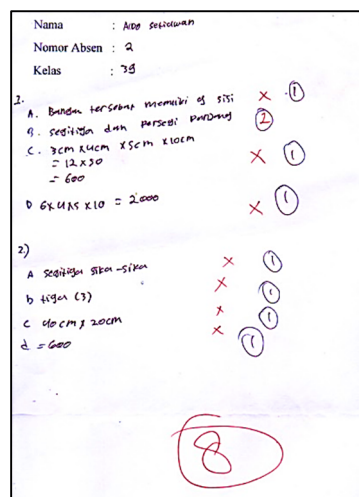 Nama : Aldo setiawan
Nomor Absen : 2
Kelas : 39
1.
A. Bangun tersebut memiliki 09 sisi × 1
B. segitiga dan persegi panjang 2
C. 3cm x 4cm x 5cm x 10cm × 1
= 12 x 50
= 600
D 6x4x5 x10 = 2000 × 1
2.)
A segitiga sika-sika × 1
b tiga (3) × 1
c 40cm x 20cm × 1
d = 600 × 1
8